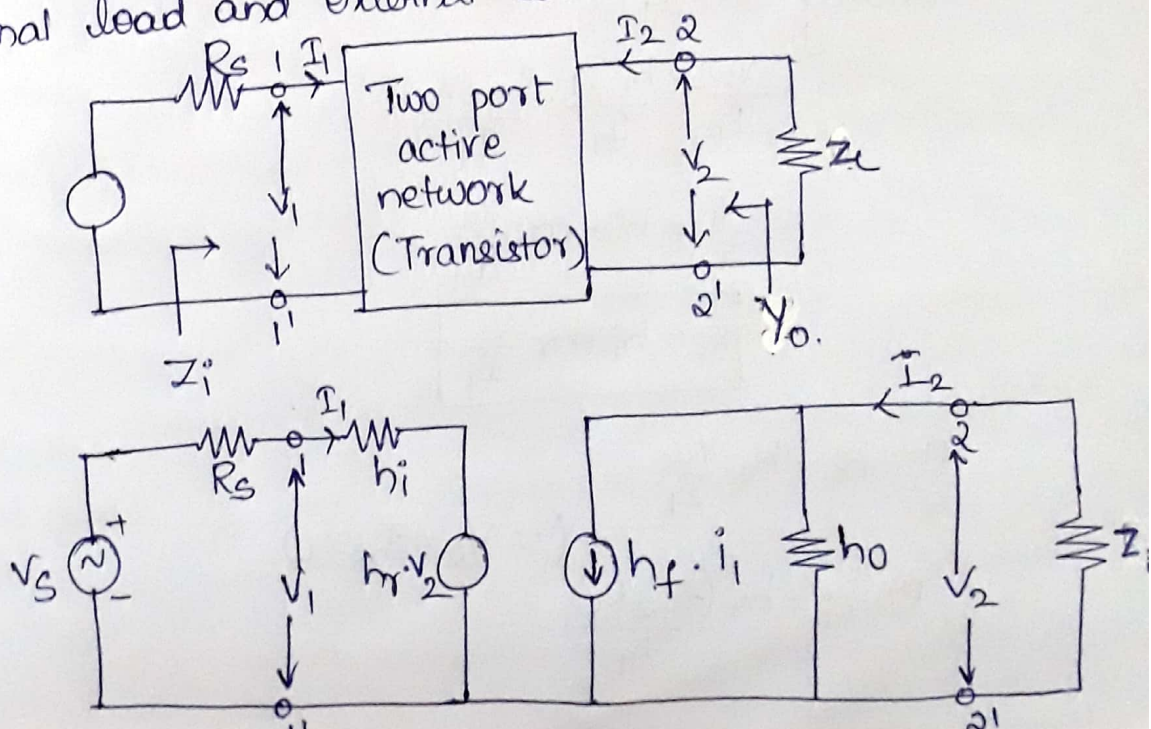 nal load and
Rs 1 I1
I2 2
Two port
active
network
(Transistor)
V1
V2
ZL
1'
2'
Yo.
Zi
I1
I2
Rs
hi
2
+
Vs
-
V1
hr.V2
hf. i1
ho
V2
Z
2'